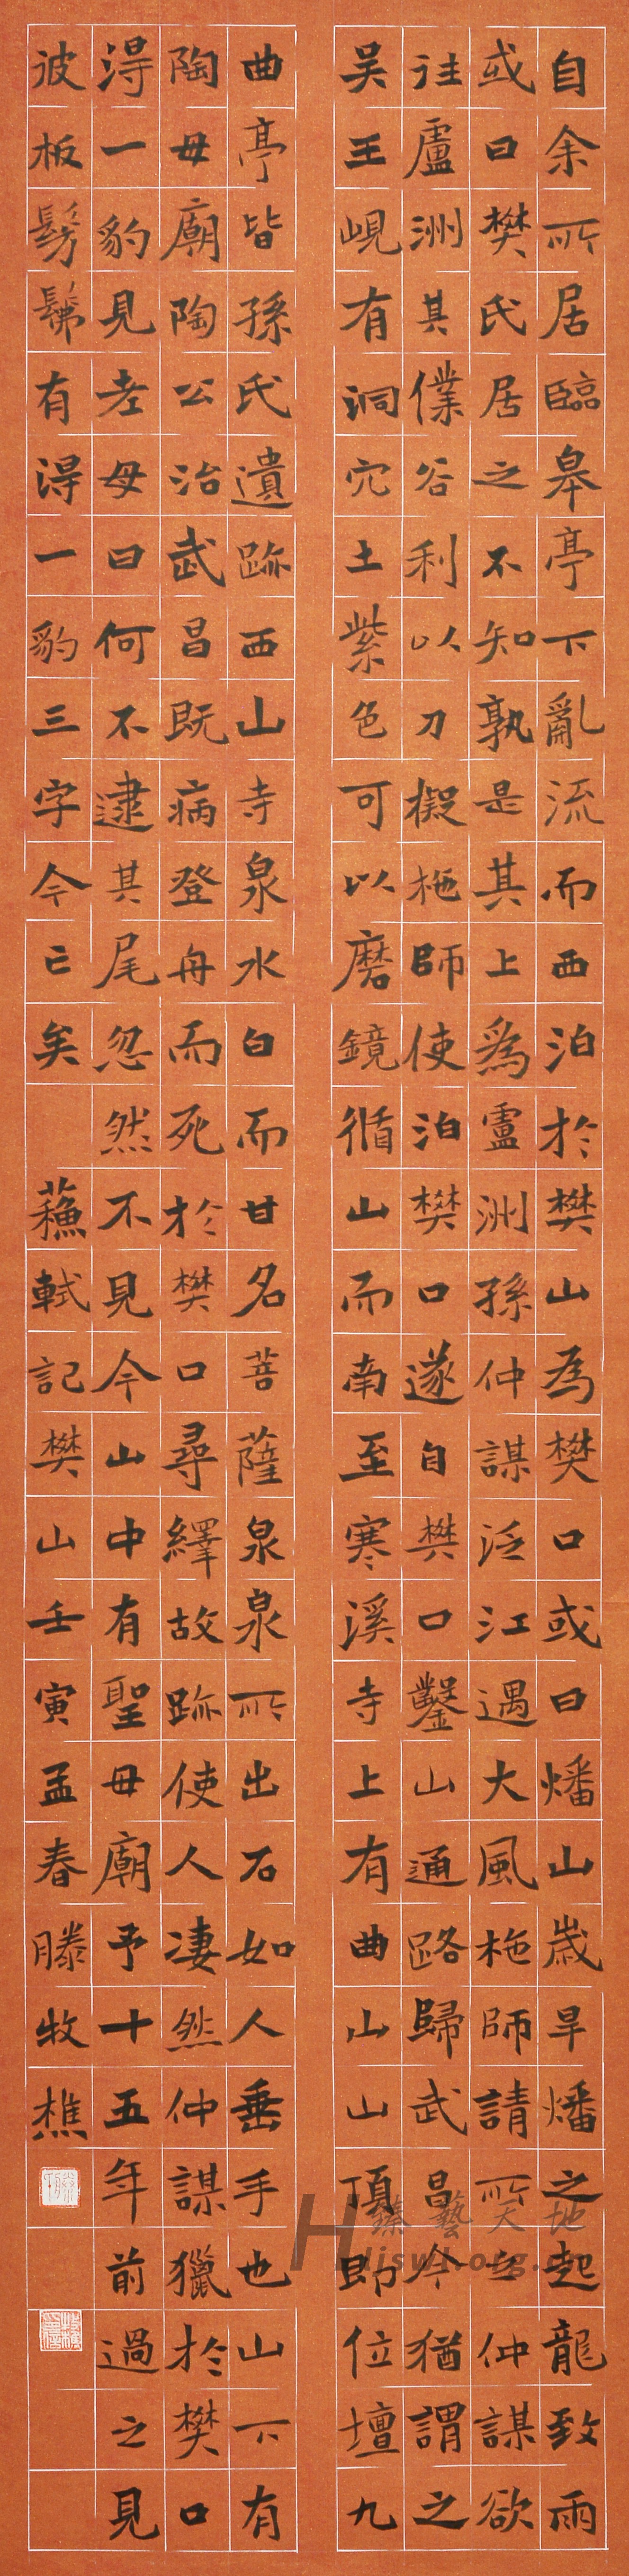 自余所居臨皋亭下亂流而西泊於樊山為樊口或曰燔山歲旱燔之起龍致雨
或曰樊氏居之不知孰是其上為盧洲孫仲謀泛江遇大風柂師請所之仲謀欲
往盧洲其僕谷利以刀擬柂師使泊樊口遂自樊口鑿山通路歸武昌今猶謂之
吳王峴有洞穴土紫色可以磨鏡循山而南至寒溪寺上有曲山山頂即位壇九
曲亭皆孫氏遺跡西山寺泉水白而甘名菩薩泉泉所出石如人垂手也山下有
陶母廟陶公治武昌既病登舟而死於樊口尋繹故跡使人淒然仲謀獵於樊口
得一豹見老母曰何不逮其尾忽然不見今山中有聖母廟予十五年前過之見
彼板髣髴有得一豹三字今亡矣 蘇軾記樊山壬寅孟春滕牧樵
臻藝天地